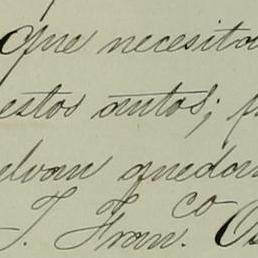 que necesita
estos autos; p
elvan quedan
T. Fran.co Os